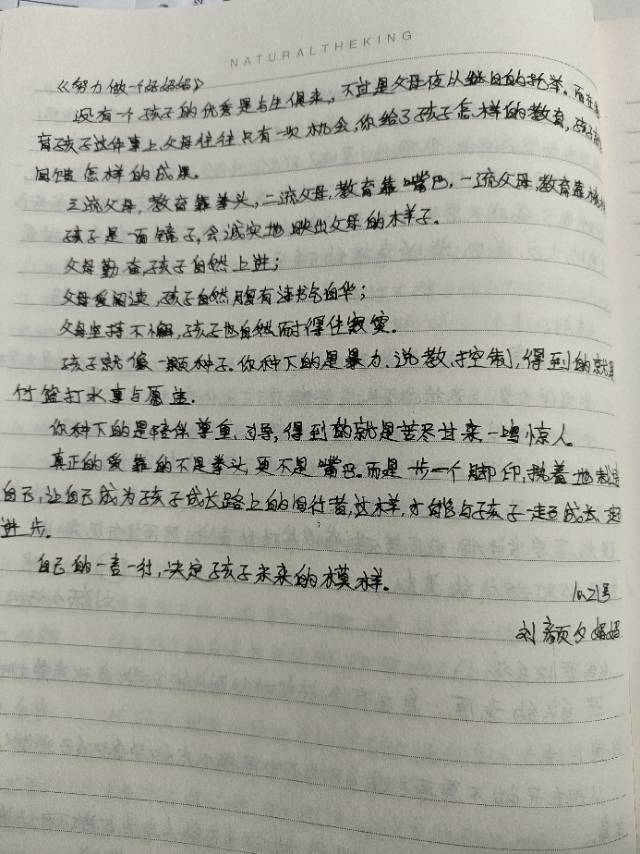 NATURALTHEKING
《努力做一个好妈妈》
没有一个孩子的优秀是与生俱来，不过是父母夜以继日的托举。而在
育孩子这件事上，父母往往只有一次机会，你给了孩子怎样的教育，孩子
回馈怎样的成果。
三流父母，教育靠拳头，二流父母，教育靠嘴巴，一流父母，教育靠
孩子是一面镜子，会诚实地映出父母的样子。
父母勤奋，孩子自然上进；
父母爱阅读，孩子自然腹有诗书气自华；
父母坚持不懈，孩子也自然耐得住寂寞。
孩子就像一颗种子，你种下的是暴力、说教、控制，得到的就是
竹篮打水事与愿违。
你种下的是陪伴尊重、引导，得到的就是苦尽甘来一鸣惊人。
真正的爱靠的不是拳头，更不是嘴巴。而是一步一个脚印，执着地
自己，让自己成为孩子成长路上的同行者，这样，才能与孩子一起成长，
进步。
自己的一言一行，决定孩子未来的模样。
10.21号
刘颜夕妈妈